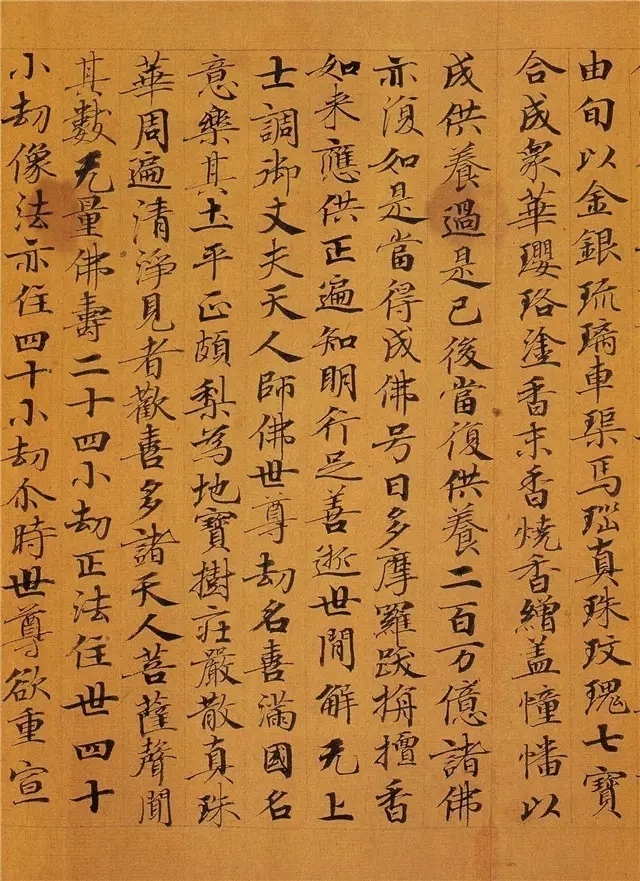 由旬以金銀琉璃車璖馬瑙真珠玫瑰七寶
合成衆華瓔珞塗香末香燒香繒盖幢幡以
戍供養過是已後當復供養二百万億諸佛
亦復如是當得成佛号曰多摩羅跋栴檀香
如来應供正遍知明行足善逝世間解无上
士調御丈夫天人師佛世尊劫名喜滿國名
意樂其土平正頗梨為地寶樹莊嚴散真珠
華周遍清淨見者歡喜多諸天人菩薩聲聞
其數无量佛壽二十四小劫正法住世四十
小劫像法亦住四十小劫尒時世尊欲重宣